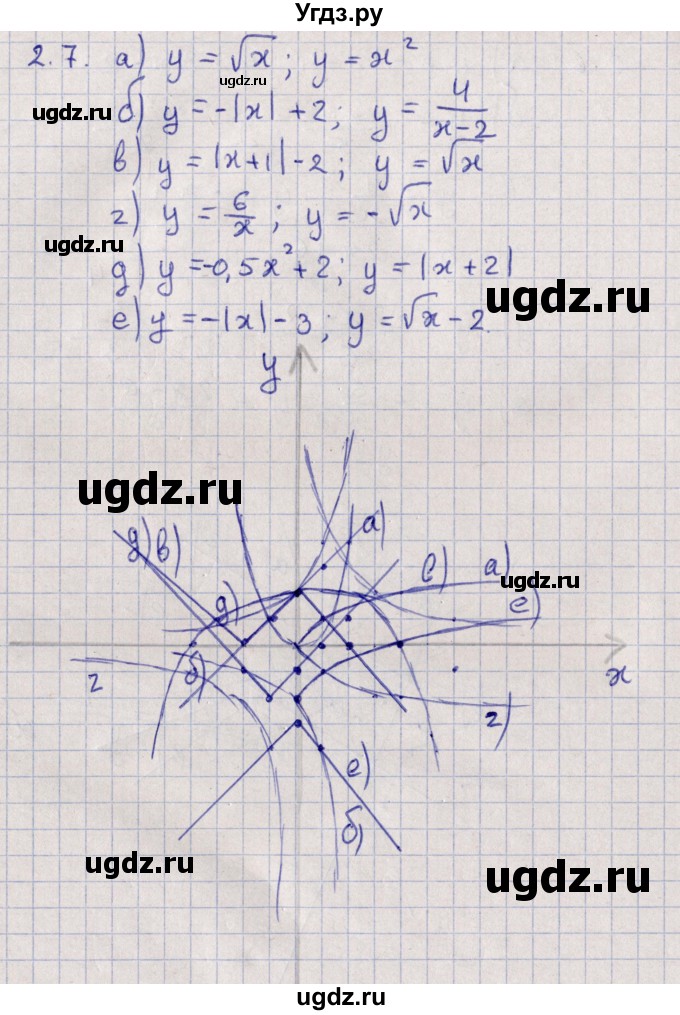 Угдз.ру
2.7. а) y = √x ; y = x²
ugdz.ru
ugdz.ru б) y = -|x| + 2; y = 4/(x-2)
в) y = |x+1| - 2; y = √x
г) y = 6/x ; y = -√x
ugdz.ru
д) y = -0,5x² + 2; y = |x + 2|
ugdz.ru
е) y = -|x| - 3; y = √x - 2.
y
ugdz.ru
а)
д) в)
в) а)
ugdz.ru
д) е)
б)
г x
г)
е)
б)
ugdz.ru
ugdz.ru
ugdz.ru